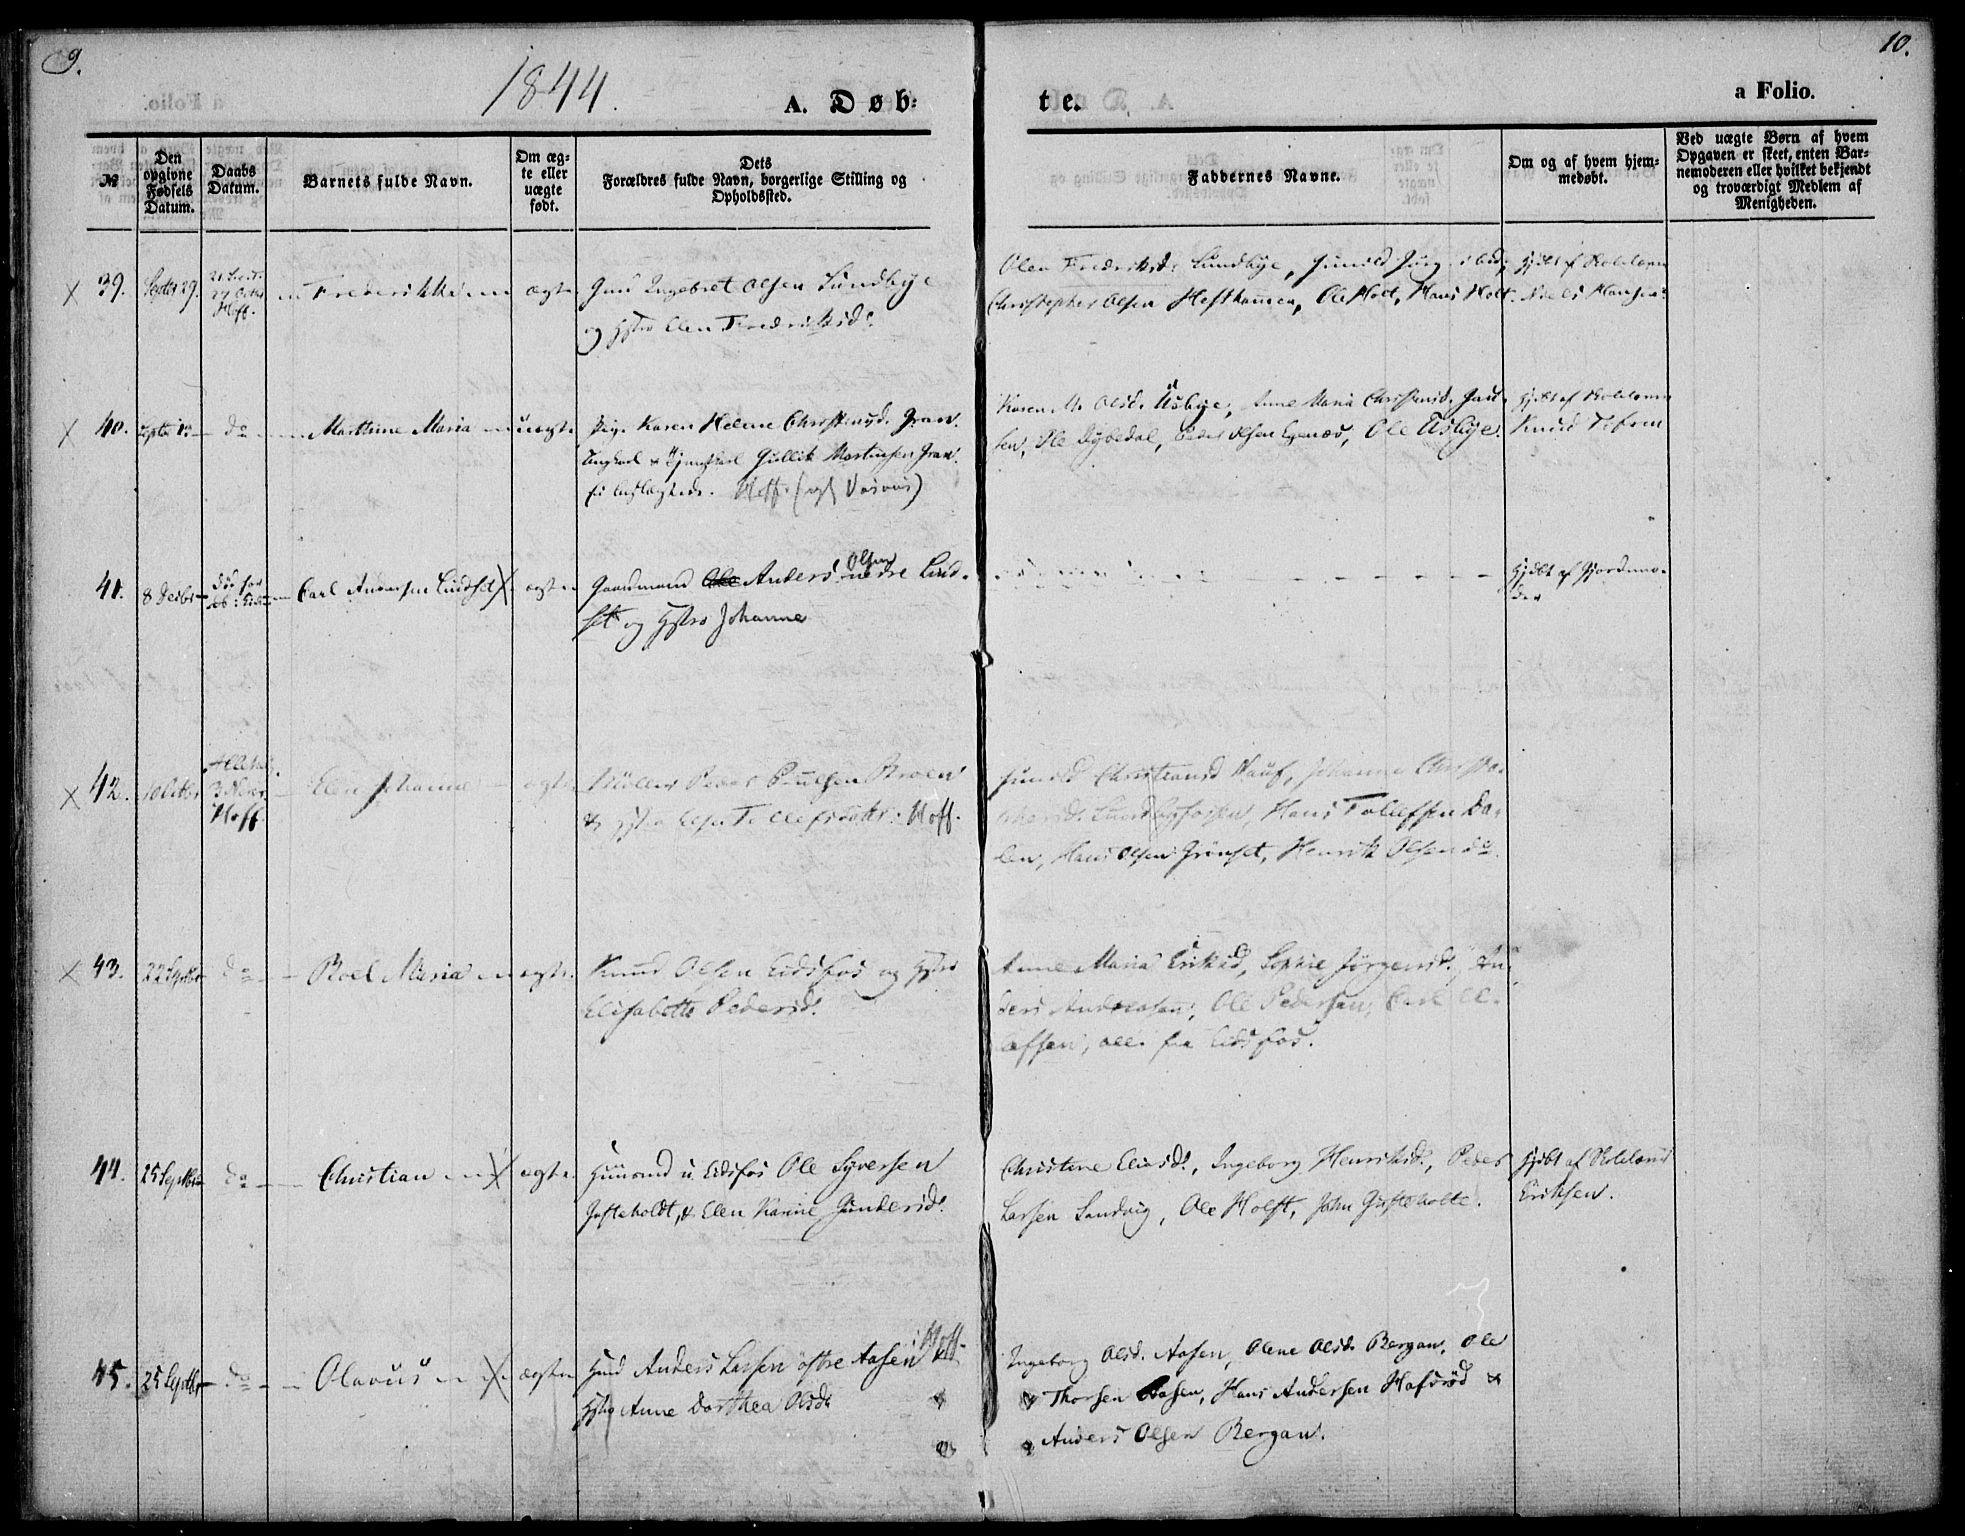 9.
1844.
A. Døb-
te.
a Folio.
10.
№
Den opgivne Fødsels Datum.
Daabs Datum.
Barnets fulde Navn.
Om ægte eller uægte født.
Dets Forældres fulde Navn, borgerlige Stilling og Opholdssted.
Faddernes Navne.
Om og af hvem hjemmedøbt.
Ved uægte Børn af hvem Opgaven er skeet, enten Barnemoderen eller hvilket bekjendt og troværdigt Medlem af Menigheden.
39. Septbr 29.
27 Octbr
Hoff.
Frederikke ægte
Ingebret Olsen Lundbye
og Hstro Elen Fredriksd.
Olea Fredriksd. Lundbye,
Christopher Olsen Hefthamen, Ole Holt, Hans Holt.
hjdbt af Skolelærer
Niels Hansen
40. do Marthine Maria uægte
Pig. Karen Helene Christensd. Gran.
Ungkarl Gullik Martinsen Gran.
Hoff.
Karen M. Olsd. Åsbye, Anne Maria Christensd.
Ole Dybedal, Peder Olsen Egenæs, Ole Åsbye.
hjdbt af Skolelærer
Knud Tefren
41. 8 Decbr
Carl Andersen Lindset ægte
Gaardmand Anders Olsen nedre Lind-
set og Hstro Johanne
hjdbt af Jordmo-
der
42. 10 Octbr
3 Novr
Hoff.
Elen Johanne ægte
Møller Peder Poulsen Broen
& Hstro Elen Tollefsdatter. Hoff.
Gunild Christiansd Hauf, Johanne Christo-
phersd. Lundbyfossen, Hans Tollefsen Da-
len, Hans Olsen Grønset, Henrik Olsen do.
43. 22 Septbr do Boel Maria ægte
Knud Olsen Eidsfos og Hstro
Elisabeth Pedersd.
Anne Maria Eriksd, Sophie Jørgensd., An-
ders Andreasen, Ole Pedersen, Carl El-
lefsen, alle fra Eidsfos.
44. 25 Septbr do Christian ægte
Huusmd u. Eidsfos Ole Syversen
Gusteholdt, & Elen Karine Gundersd.
Christine Eliasd., Ingeborg Henriksd., Peder
Larsen Sandvig, Ole Holst, John Gusteholt.
hjdbt af Skolelærer
Eriksen.
45. 25 Septbr do Olavus ægte
i Hoff
Hmd Anders Larsen østre Aasen
Hstro Anne Dorthea Olsd.
Ingeborg Olsd. Aasen, Olene Olsd. Bergan, Ole
Thorsen Aasen, Hans Andersen Hafsrød &
Anders Olsen Bergan.